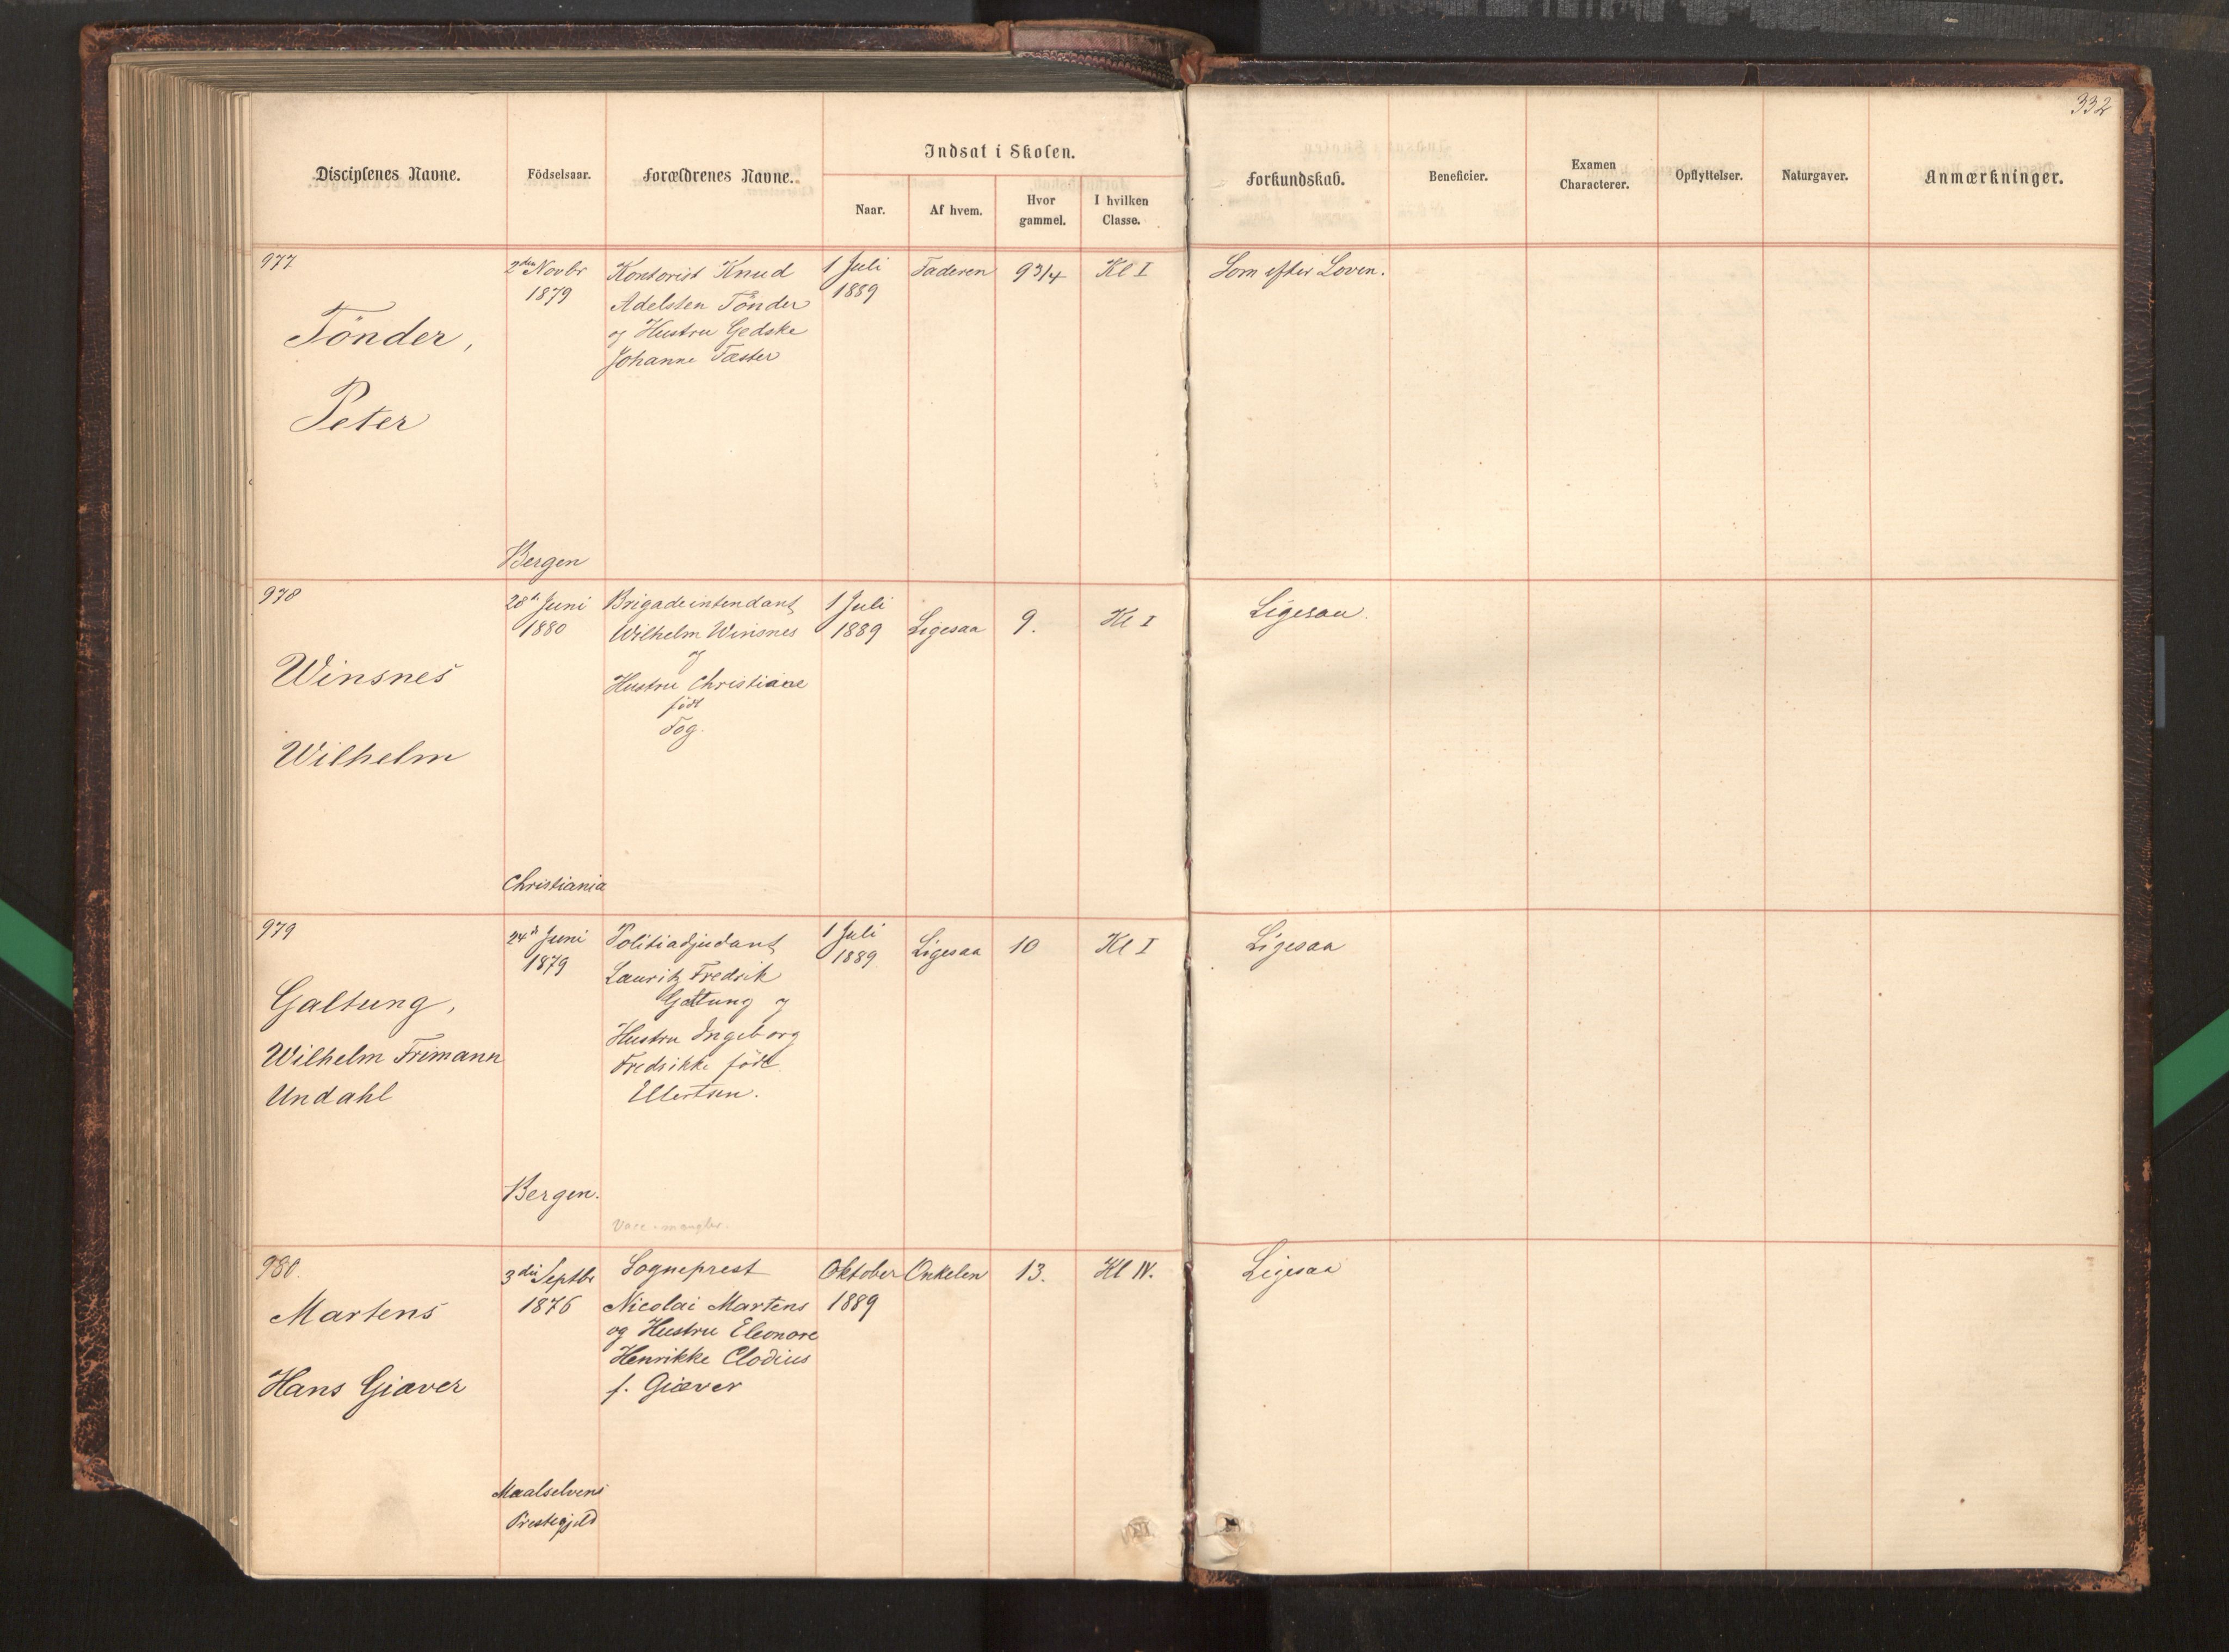 332
Disciplenes Navne.
Födselsaar.
Forældrenes Navne.
Indsat i Skolen.
Naar.
Af hvem.
Hvor
gammel.
I hvilken
Classe.
Forkundskab.
Beneficier.
Examen
Characterer.
Opflyttelser.
Naturgaver.
Anmærkninger.
977
Tönder,
Peter
2den Novbr
1879
Bergen
Kontorist Knud
Adelsten Tönder
og Hustru Gedske
Johanne Fæster
1 Juli
1889
Faderen
9 3/4
Kl I
Som efter Loven.
978
Winsnes
Wilhelm
28de Juni
1880
Christiania
Brigadeintendant
Wilhelm Winsnes
og
Hustru Christiane
född
Fog.
1 Juli
1889
Ligesaa
9.
Kl I
Ligesaa.
979
Galtung,
Wilhelm Frimann
Undahl
24de Juni
1879
Bergen.
Politiadjudant
Lauritz Fredrik
Galtung og
Hustru Ingeborg
Fredrikke född
Ellertsen.
Vacc. mangler.
1 Juli
1889
Ligesaa
10
Kl I
Ligesaa
980.
Martens
Hans Giæver
3die Septbr
1876
Maalselvens
Prestegjeld
Sogneprest
Nicolai Martens
og Hustru Eleonore
Henrikke Clodius
f. Giæver
Oktober
1889
Onkelen
13.
Kl IV.
Ligesaa